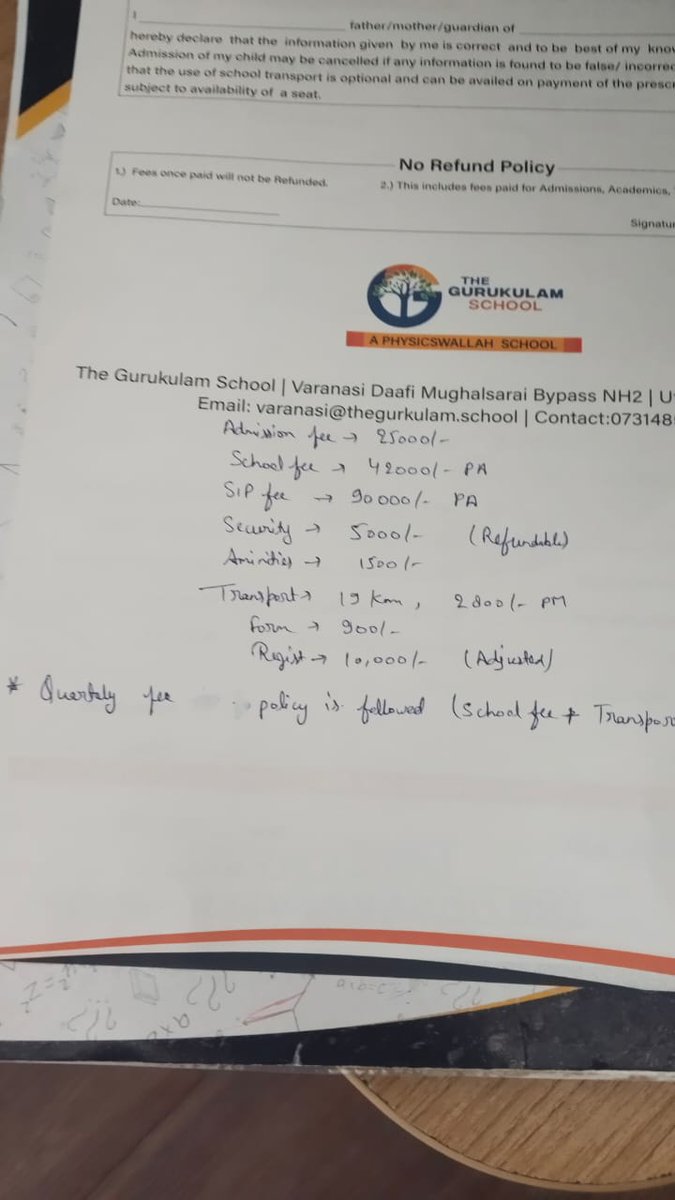 I ____ father/mother/guardian of ____
hereby declare that the information given by me is correct and to be best of my
Admission of my child may be cancelled if any information is found to be false/
that the use of school transport is optional and can be availed on payment of the
subject to availability of a seat.
No Refund Policy
1.) Fees once paid will not be Refunded.
2.) This includes fees paid for Admissions, Academics,
Date:
THE
GURUKULAM
SCHOOL
A PHYSICSWALLAH SCHOOL
The Gurukulam School | Varanasi Daafi Mughalsarai Bypass NH2 |
Email: varanasi@thegurkulam.school | Contact:073148
Admission fee → 25000/-
School fee → 42000/- PA
SIP fee → 90000/- PA
Security → 5000/- (Refundable)
Aminities → 1500/-
Transport → 19 km, 2800/- PM
Form → 900/-
Regist → 10,000/- (Adjusted)
* Quartely fee policy is followed (School fee + Transpor